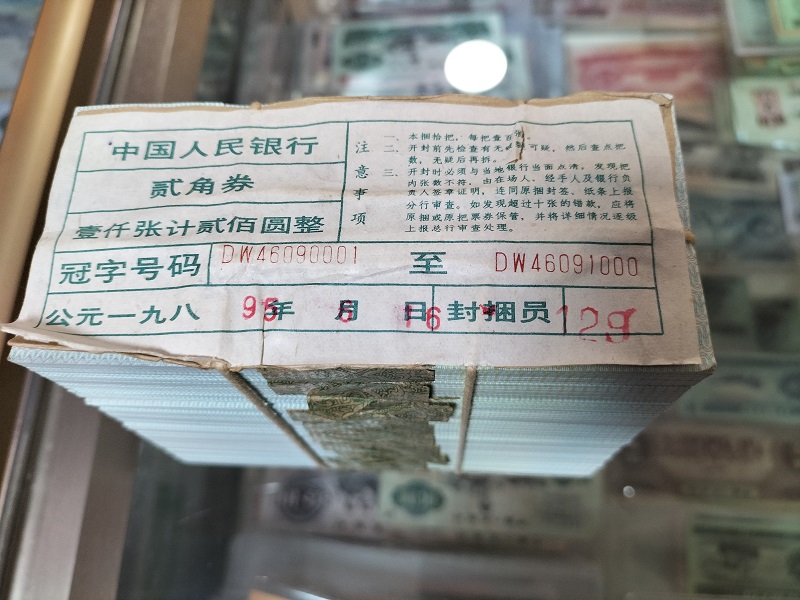 中国人民银行
贰角券
壹仟张计贰佰圆整
注意事项
一、本捆恰把，每把查百
二、开封前先检查有无可疑，然后查点把
数，无疑后再拆。
三、开封时必须与当地银行当面点清，发现把
内张数不符，由在场人、经手人及银行负
责人签章证明，连同原捆封签、纸条上报
分行审查。如发现超过十张的错款，应将
原捆或原把票券保管，并将详细情况逐级
上报总行审查处理。
冠字号码 DW46090001 至 DW46091000
公元一九八 95年 月 16日 封捆员 129